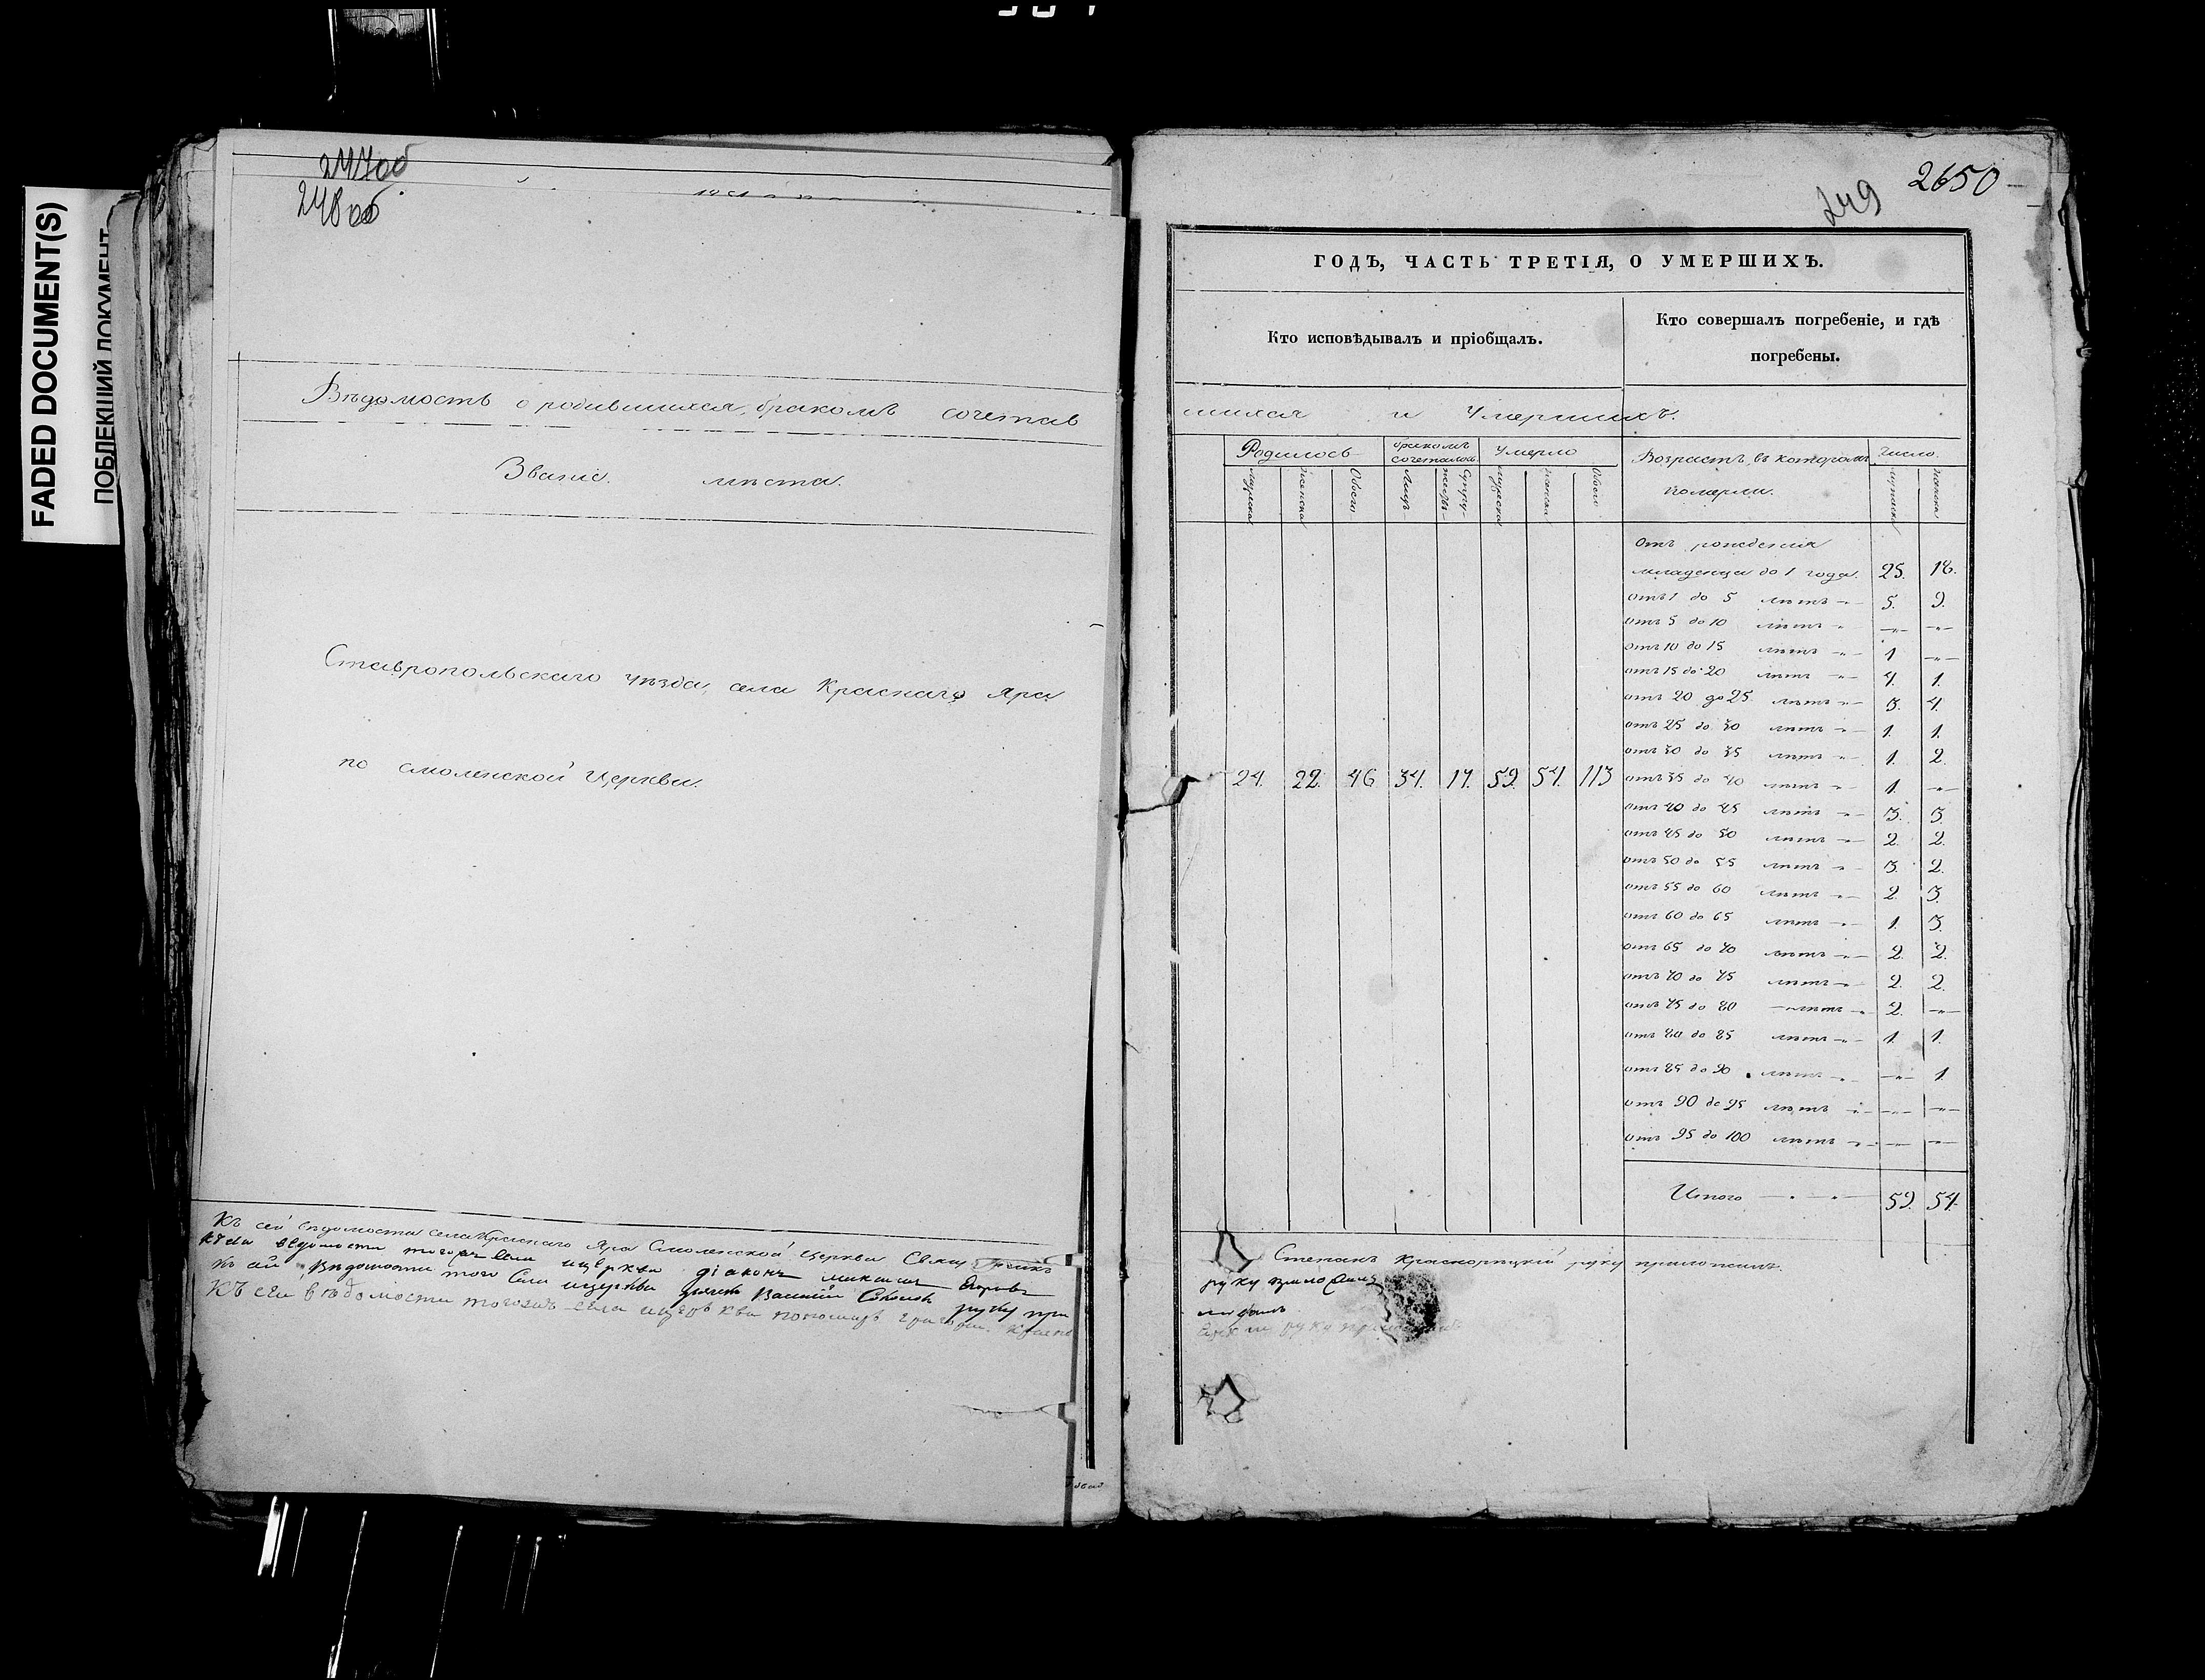 FADED DOCUMENT(S)
ПОБЛЕКШИЙ ДОКУМЕНТ
247об
248об
Вѣдомость о родившихся, бракомъ сочетав
Званіе мѣста.
Ставропольскаго уѣзда, села Краснаго Яра
по Смоленской Церкви.
Къ сей вѣдомости села Краснаго Яра Смоленской церкви Свящ
къ сей вѣдомости того же села и церкви діаконъ
къ сей вѣдомости того села и церкви Василій руку при
Къ сей вѣдомости того жъ села и церкви пономарь
2650
249
ГОДЪ, ЧАСТЬ ТРЕТІЯ, О УМЕРШИХЪ.
Кто исповѣдывалъ и пріобщалъ.
Кто совершалъ погребеніе, и гдѣ
погребены.
шихся и умершихъ.
Родилось
бракомъ сочеталось
Умерло
Возрастъ, въ которомъ
померли.
Число.
Мужеска
Женска
Обоего
Лицъ
Супружествъ
Мужеска
Женска
Обоего
Мужеска
Женска
отъ рожденія
младенца до 1 года. 25. 18.
отъ 1 до 5 лѣтъ -„- 5. 9.
отъ 5 до 10 лѣтъ -„- -„- -„-
отъ 10 до 15 лѣтъ -„- 1 -„-
отъ 15 до 20 лѣтъ -„- 4. 1.
отъ 20 до 25 лѣтъ -„- 3. 4.
отъ 25 до 30 лѣтъ -„- 1. 1.
отъ 30 до 35 лѣтъ -„- 1. 2.
24. 22. 46 34. 17. 59. 54. 113
отъ 35 до 40 лѣтъ -„- 1. -„-
отъ 40 до 45 лѣтъ -„- 3. 3.
отъ 45 до 50 лѣтъ -„- 2. 2.
отъ 50 до 55 лѣтъ -„- 3. 2.
отъ 55 до 60 лѣтъ -„- 2. 3.
отъ 60 до 65 лѣтъ -„- 1. 3.
отъ 65 до 70 лѣтъ -„- 2. 2.
отъ 70 до 75 лѣтъ -„- 2. 2.
отъ 75 до 80 лѣтъ -„- 2. -„-
отъ 80 до 85 лѣтъ -„- 1. 1.
отъ 85 до 90 лѣтъ -„- -„- 1.
отъ 90 до 95 лѣтъ -„- -„- -„-
отъ 95 до 100 лѣтъ -„- -„- -„-
Итого -„- 59. 54.
Степанъ руку приложилъ.
руку приложилъ